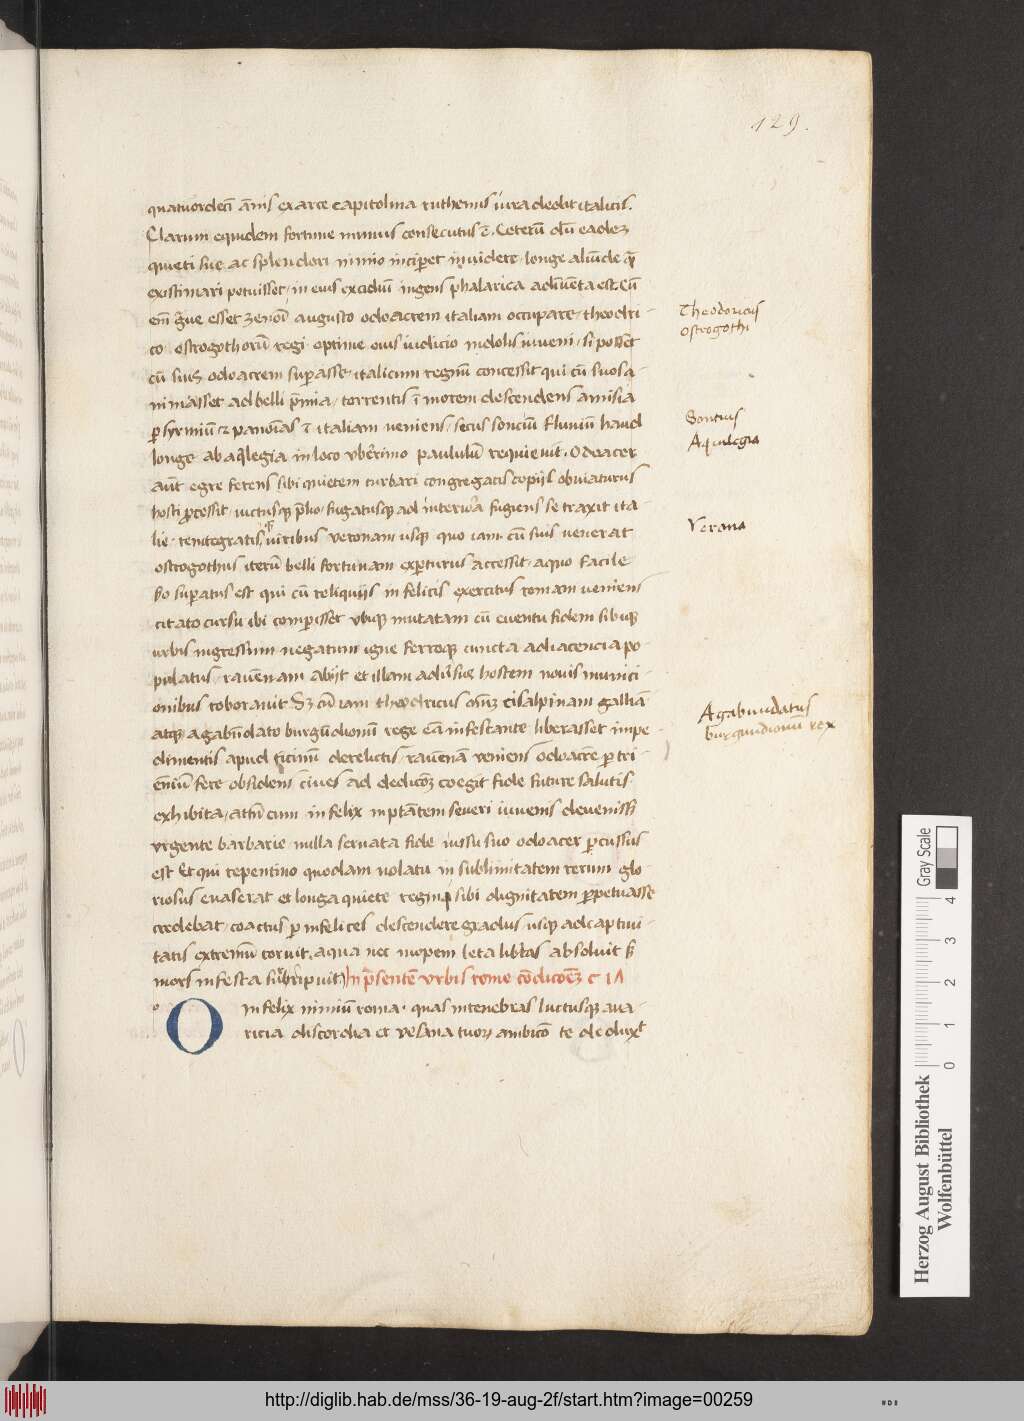 129.
quatuordecī ānis ex arce capitolina ruthenus iura dedit italicis.
Clarum equidem fortune munus consecutus ē. Ceterū dū eadeꝫ
quieti sue ac splendori nimio inciperet inuidere, longe aliūde ꝙ̄
existimari potuisset, in eius excidiū ingens phalarica aduenta est. cū
em̄ ḡue esset zenoni augusto odoacrem italiam occupare, theodri-
co ostrogothorū regi optime eius iudicio indolis iuueni, si posset
cū suis odoacrem superasse, italicum regnū concessit qui cū suos a-
nimasset ad belli p̄mia, torrentis ī morem descendens a misia
ꝑ syrmiū et panoīas ī italiam ueniens, secus sonciū fluuiū haud
longe ab aq̄legia in loco vberrimo paululū requieuit. Odoacer
aūt egre ferens sibi quietem turbari congregatis copijs obuiaturus
hosti processit, uictusqꝫ p̄lio, fugatusqꝫ ad interiora fugiens se traxit ita-
lie. reintegratis uiribus veronam usqꝫ quo iam cū suis uenerat
ostrogothus iterū belli fortunam experturus accessit, a quo facile
superatus est qui cū reliquijs infelicis exercitus romam ueniens
citato cursu ibi comperisset vbiqꝫ mutatam cū euentu fidem sibiqꝫ
urbis ingressum negatum igne ferroqꝫ cuncta adiacencia po-
pulatus, rauennam abijt et illam aduersus hostem nouis munici-
onibus roborauit. Sꝫ cū iam theodricus om̄ꝫ cisalpinam galliā
atqꝫ agabūdato burgūdionū rege eā infestante liberasset impe-
dimentis apud ticinū derelictis, rauennā veniens odoacrē ꝑ tri-
enniū fere obsidens ciues ad dedicōꝫ coegit fide future salutis
exhibita, at cum infelix in ptātem seueri iuuenis deuenisset
vrgente barbarie nulla seruata fide iussu suo odoacer percussus
est Et qui repentino quodam uolatu in sublimitatem rerum glo-
riosus euaserat et longa quiete regni sibi dignitatem perpetuasse
credebat, coactus ꝑ infelices descendere gradus usqꝫ ad captiui-
tatis extremū coruit, a qua nec inopem leta libertas absoluit sꝫ
mors infesta subripuit. In p̄sentē vrbis rome cōdicōeꝫ c IA
O infelix nimiū roma, quas in tenebras luctusqꝫ aua-
ricia discordia et vesana tuorū ambicō te deduxit
Theodoricus
ostrogothi
Sontius
Aquilegia
Verona
Agabundatus
burgundionū rex
Herzog August Bibliothek
Wolfenbüttel
0 1 2 3 4
Gray Scale
http://diglib.hab.de/mss/36-19-aug-2f/start.htm?image=00259